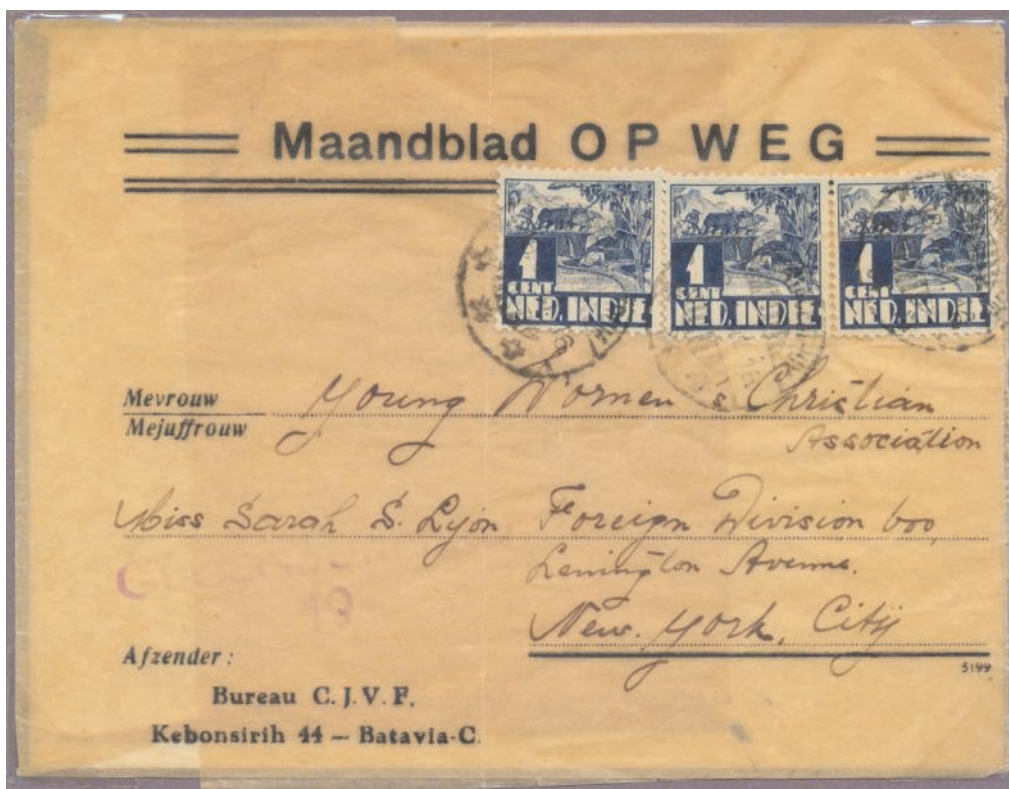 Maandblad OP WEG
1 CENT NED. INDIE
1 CENT NED. INDIE
1 CENT NED. INDIE
Mevrouw
Mejuffrouw
Young Women's Christian
Association
Miss Sarah S. Lyon Foreign Division 600,
Lexington Avenue.
New. York, City
5199
Afzender:
Bureau C. J. V. F.
Kebonsirih 44 — Batavia-C.